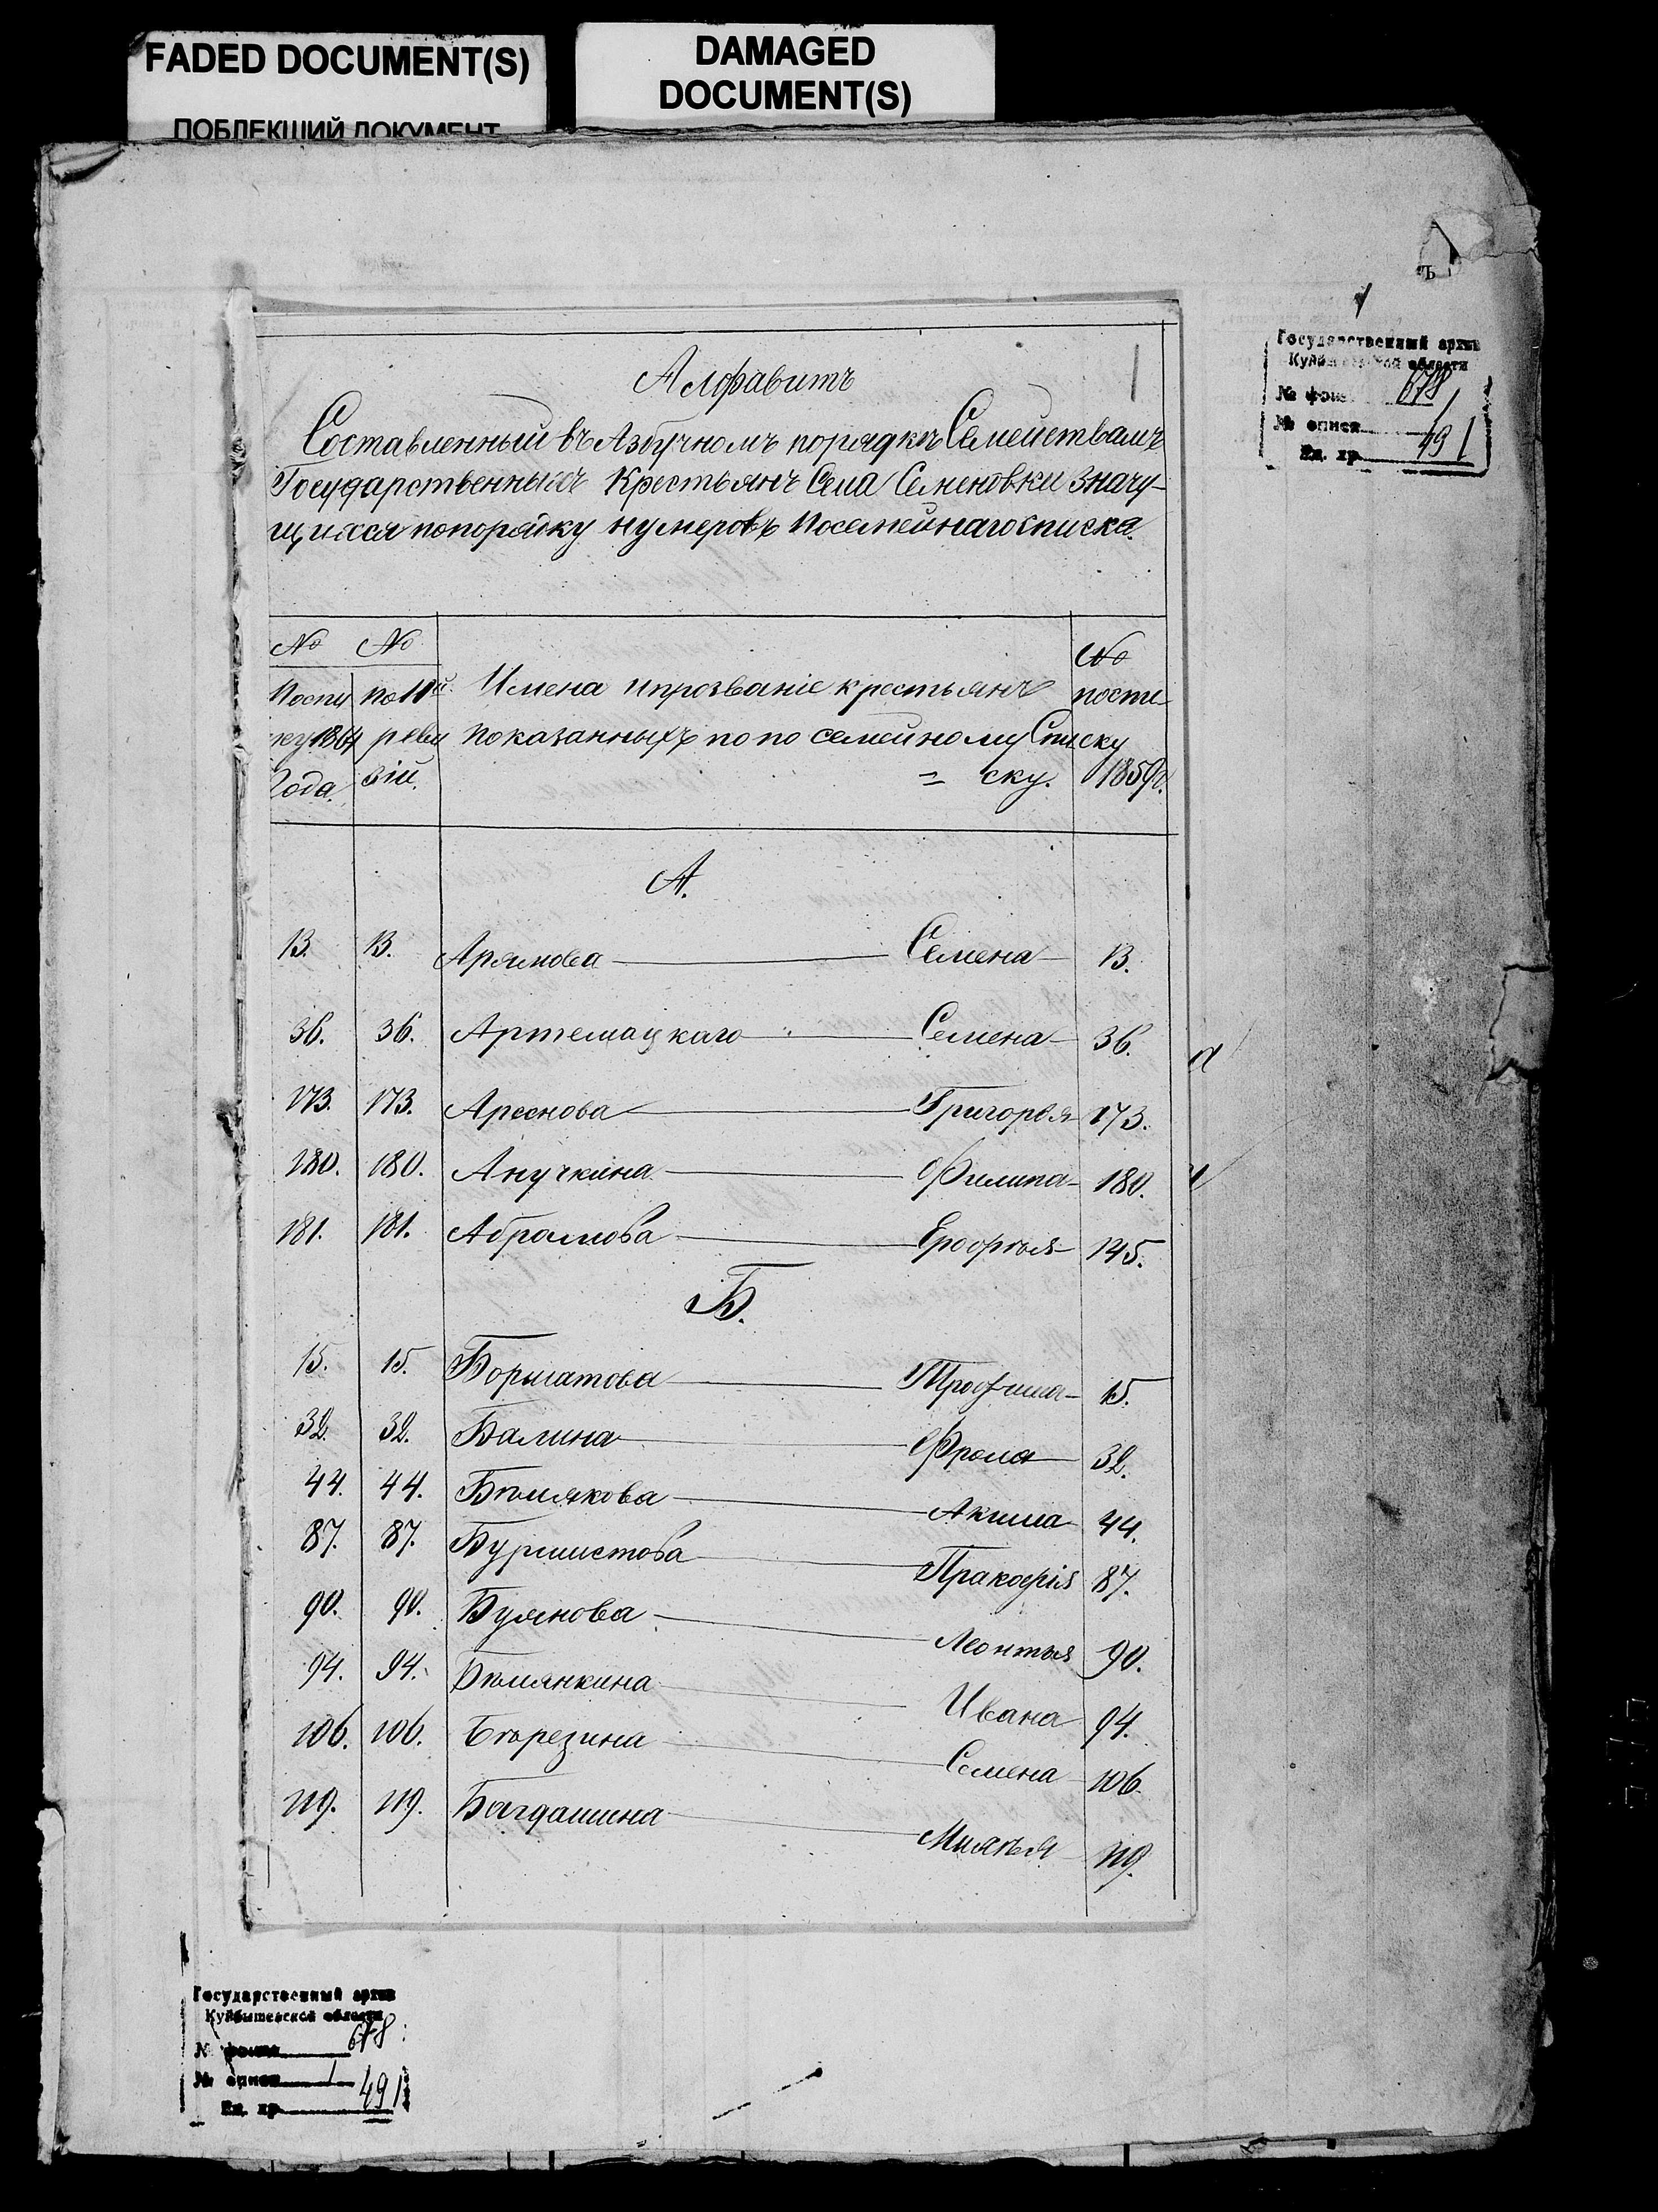 FADED DOCUMENT(S)
ПОБЛЕКШИЙ ДОКУМЕНТ
DAMAGED
DOCUMENT(S)
Ъ
Государственный архив
Куйбышевской области
№ фон. 678
№ описи 1
Ед. хр. 491
Алфавитъ
Составленный въ Азбучномъ порядкѣ Семействамъ
Государственныхъ Крестьянъ Села Семеновки Значу-
щихся попорядку нумеровъ Посемейнаго списка.
№ № №
Поспи по 10й Имена ипрозваніе крестьянъ поспи-
ску 1864 реви показанныхъ по по семейному Списку
Года. зіи. = ску. 1859г.
А.
13. 13. Арямова Семена 13.
36. 36. Артемацкаго Семена 36.
173. 173. Арсенова Григорья 173.
180. 180. Анучкина Филипа 180.
181. 181. Абрамова Ерофѣя 145.
Б.
15. 15. Борматова Трофима 15.
32. 32. Балина Фрола 32.
44. 44. Бѣлякова Акима 44.
87. 87. Бурмистова Пракофія 87.
90. 90. Буянова Леонтья 90.
94. 94. Бѣлянкина Ивана 94.
106. 106. Бѣрезина Семена 106.
119. 119. Багдашина 119.
Государственный архив
Куйбышевской области
№ фонда 678
№ описи 1
Ед. хр. 491